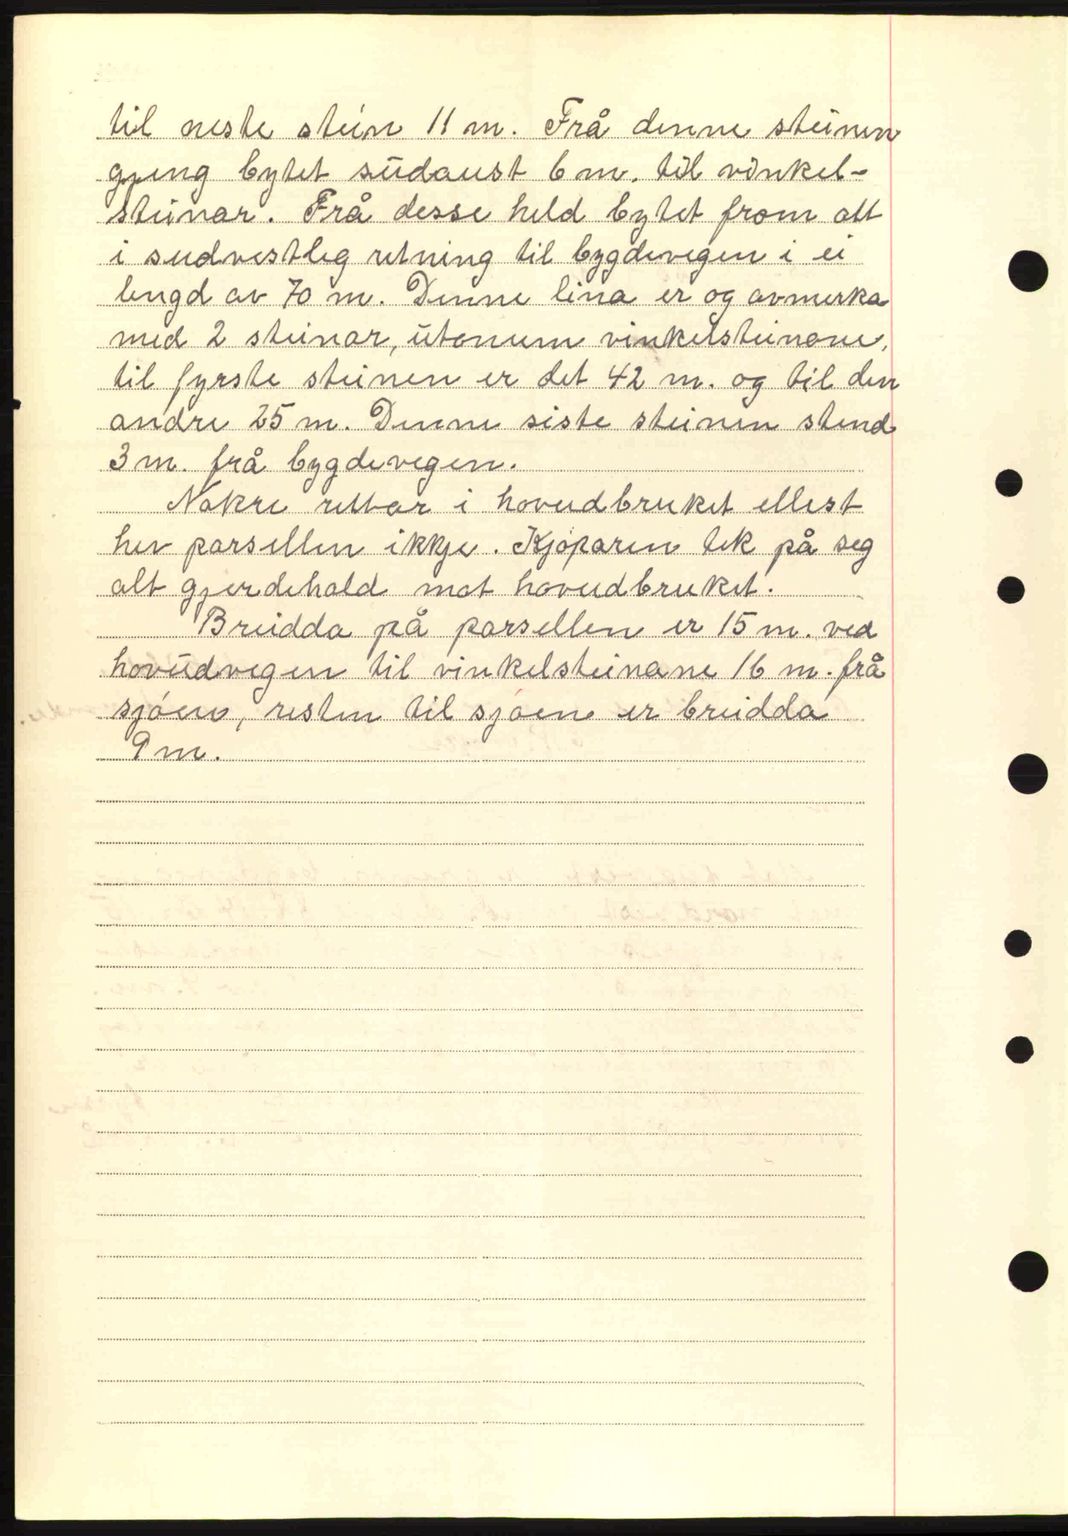 til neste stein 11 m. Frå denne steinen
gjeng bytet südaust 6 m. til vinkel-
steinar. Frå desse held bytet fram att
i sudvestleg retning til bygdevegen i ei
lengd av 70 m. Denne lina er og avmerka
med 2 steinar, ütanum vinkelsteinane,
til fyrste steinen er det 42 m. og til den
andre 25 m. Denne siste steinen stend
3 m. frå bygdevegen.
Nokre rettar i hovudbruket ellest
hev parsellen ikkje. Kjøparen tek på seg
alt gjerdehald mot hovudbruket.
Breidda på parsellen er 15 m. ved
hovüdvegen til vinkelsteinane 16 m. frå
sjóen, resten til sjóen er breidda
9 m.